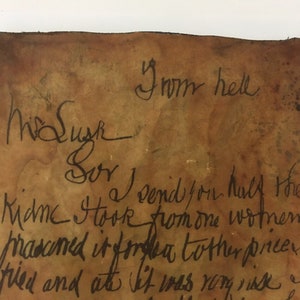 From hell
Mr Lusk
Sor
I send you half the
Kidne I took from one women
prasarved it for you tother piece
fried and ate it was very nise